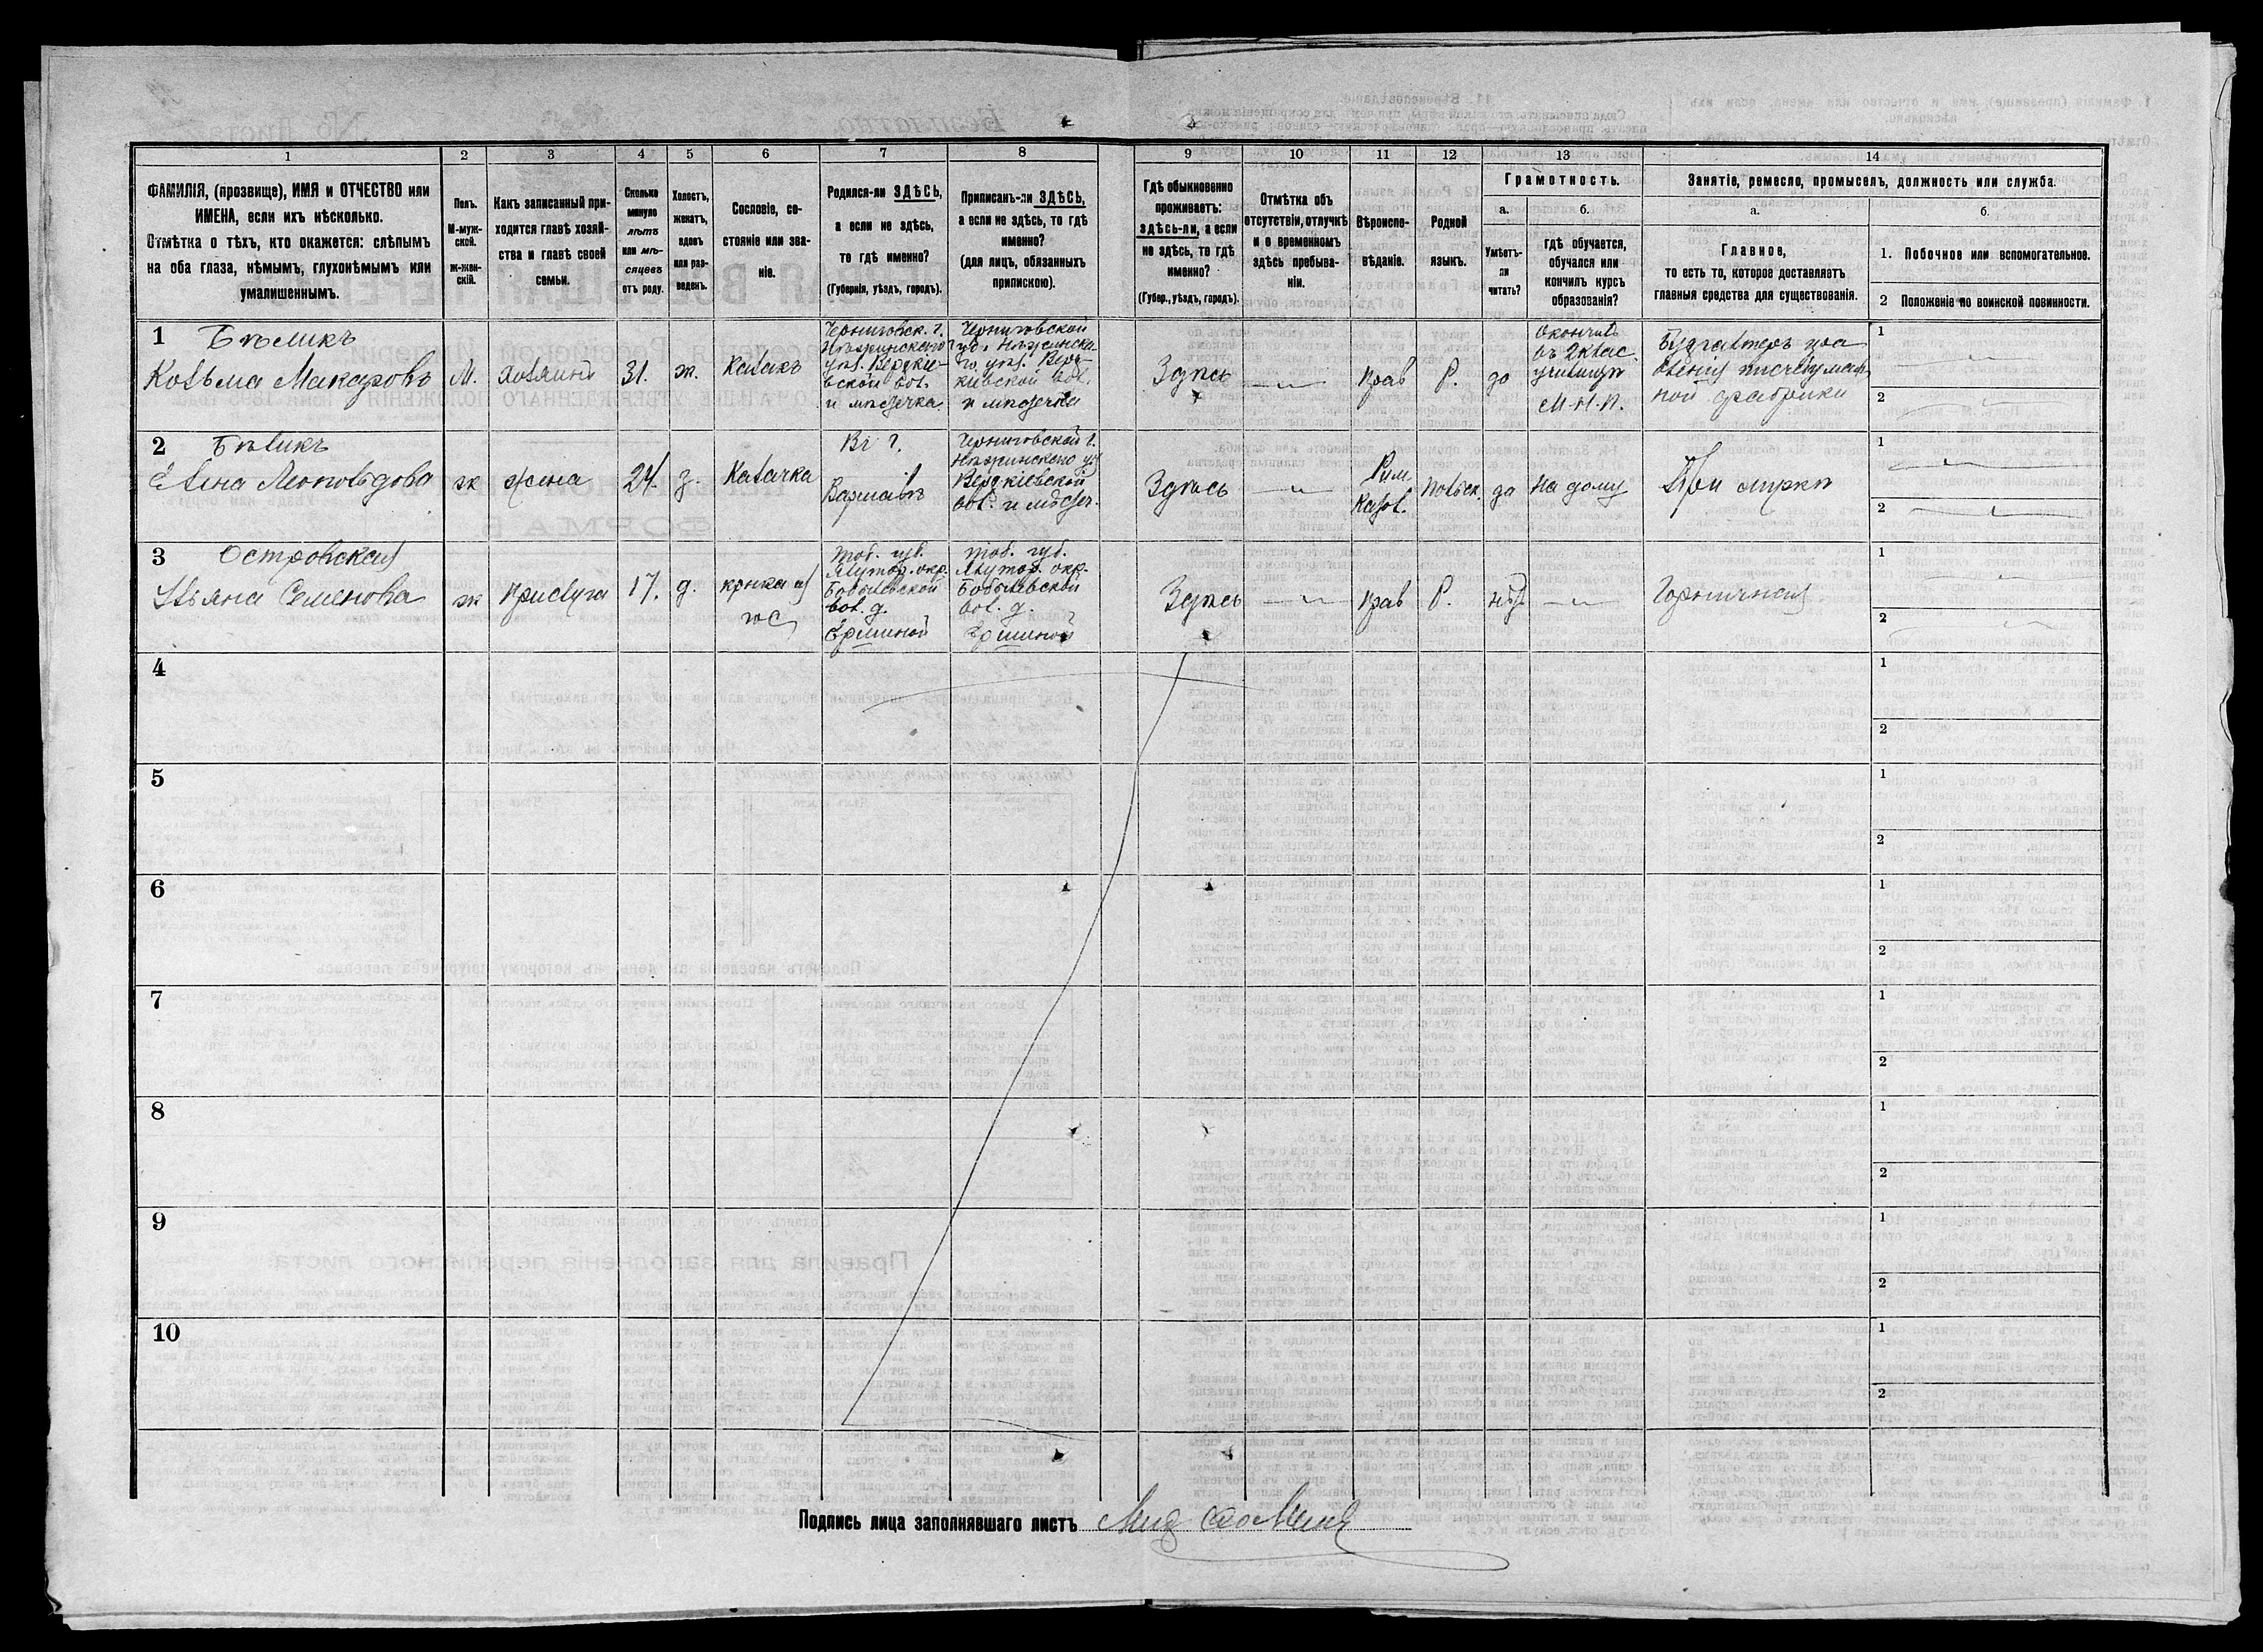 1
2
3
4
5
6
7
8
9
10
11
12
13
14
ФАМИЛІЯ, (прозвище), ИМЯ и ОТЧЕСТВО или
ИМЕНА, если ихъ нѣсколько.
Отмѣтка о тѣхъ, кто окажется: слѣпымъ
на оба глаза, нѣмымъ, глухонѣмымъ или
умалишеннымъ.
Полъ.
М-муж-
ской.
ж-жен-
скій.
Какъ записанный при-
ходится главѣ хозяй-
ства и главѣ своей
семьи.
Сколько
минуло
лѣтъ
или мѣ-
сяцевъ
отъ роду.
Холостъ,
женатъ,
вдовъ
или раз-
веденъ.
Сословіе, со-
стояніе или зва-
ніе.
Родился-ли ЗДѢСЬ,
а если не здѣсь,
то гдѣ именно?
(Губернія, уѣздъ, городъ).
Приписанъ-ли ЗДѢСЬ,
а если не здѣсь, то гдѣ
именно?
(для лицъ, обязанныхъ
припискою).
Гдѣ обыкновенно
проживаетъ:
здѣсь-ли, а если
не здѣсь, то гдѣ
именно?
(Губер., уѣздъ, городъ).
Отмѣтка объ
отсутствіи, отлучкѣ
и о временномъ
здѣсь пребыва-
ніи.
Вѣроиспо-
вѣданіе.
Родной
языкъ.
Грамотность.
а.
б.
Умѣетъ-
ли
читать?
гдѣ обучается,
обучался или
кончилъ курсъ
образованія?
Занятіе, ремесло, промыселъ, должность или служба.
а.
б.
Главное,
то есть то, которое доставляетъ
главныя средства для существованія.
1. Побочное или вспомогательное.
2 Положеніе по воинской повинности.
1
Бѣликъ
Козьма Макаровъ
М.
Хозяинъ
31.
ж.
Казакъ
Черниговск. г.
Нѣжинскаго
уѣз. Веркіе-
вской вол.
и мѣстечка
Черниговской
губ. Нѣжинска-
го уѣз. Вер-
кіевской вол.
и мѣстечка
Здѣсь
прав
Р.
да
Окончилъ
въ 2клас.
училищѣ
М.Н.П.
Бухгалтеръ
писчебумаж
ной фабрики
1
2
2
Бѣликъ
Елена Леопольдова
ж
жена
24.
з.
Казачка
Въ г.
Варшавѣ
Черниговской г.
Нѣжинскаго у.
Веркіевской
вол. и мѣстеч.
Здѣсь
Рим.
Катол.
Польск.
да
На дому
При мужѣ
1
2
3
Островская
Ульяна Семенова
ж
прислуга
17.
д.
крнка из
Тоб. губ.
Ялутор. окр.
Бобылевской
вол. д.
Ершиной
Тоб. губ.
Ялутор. окр.
Бобылевской
вол. д.
Ершиной
Здѣсь
прав
Р.
нѣтъ
Горничная
1
2
4
1
2
5
1
2
6
1
2
7
1
2
8
1
2
9
1
2
10
1
2
Подпись лица заполнявшаго листъ